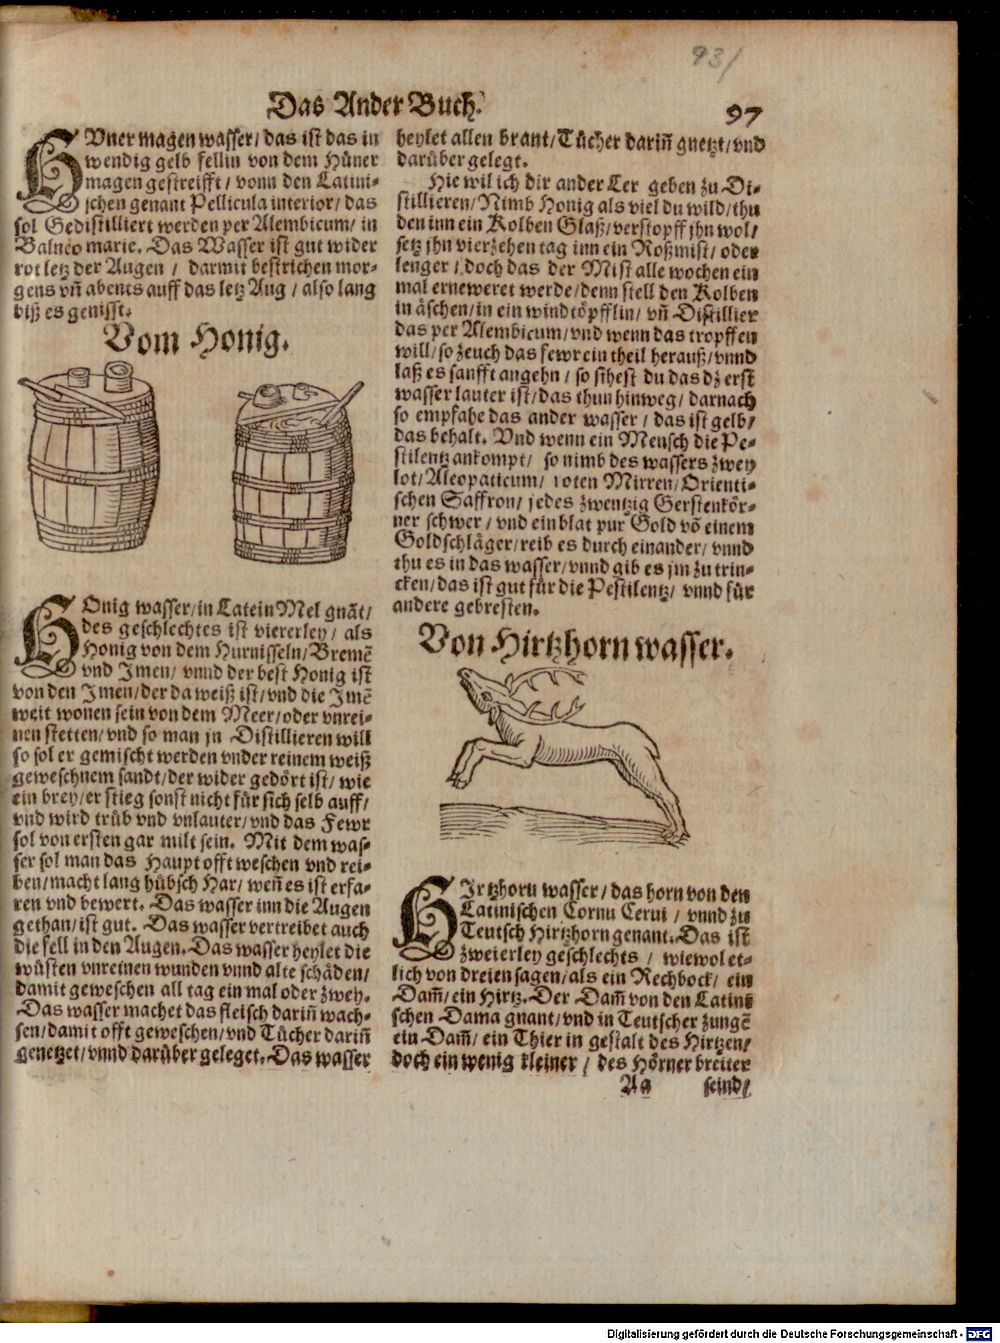 93/
Das Ander Buch.
97
HVner magen wasser/ das ist das in
wendig gelb fellin von dem Hüner
magen gestreifft/ vonn den Latini-
schen genant Pellicula interior/ das
sol Gedistilliert werden per Alembicum/ in
Balneo marie. Das Wasser ist gut wider
rot letz der Augen / darmit bestrichen mor-
gens vñ abents auff das letz Aug / also lang
biß es genisst.
Vom Honig.
HOnig wasser/in Latein Mel gnãt/
des geschlechtes ist viererley/ als
Honig von dem Hurnisseln/Bremẽ
vnd Imen/ vnnd der best Honig ist
von den Imen/der da weiß ist/vnd die Imẽ
weit wonen sein von dem Meer/oder vnrei-
nen stetten/vnd so man jn Distillieren will
so sol er gemischt werden vnder reinem weiß
geweschnem sandt/der wider gedört ist/ wie
ein brey/er stieg sonst nicht für sich selb auff/
vnd wird trüb vnd vnlauter/vnd das Fewr
sol von ersten gar milt sein. Mit dem was-
ser sol man das Haupt offt weschen vnd rei-
ben/macht lang hübsch Har/ weñ es ist erfa-
ren vnd bewert. Das wasser inn die Augen
gethan/ist gut. Das wasser vertreibet auch
die fell in den Augen. Das wasser heylet die
wüsten vnreinen wunden vnnd alte schäden/
damit geweschen all tag ein mal oder zwey.
Das wasser machet das fleisch dariñ wach-
sen/damit offt geweschen/vnd Tücher dariñ
genetzet/vnnd darüber geleget. Das wasser
heylet allen brant/Tücher dariñ gnetzt/vnd
darüber gelegt.
Hie wil ich dir ander Ler geben zu Di-
stillieren/Nimb Honig als viel du wild/thu
den inn ein Kolben Glaß/verstopff jhn wol/
setz jhn vierzehen tag inn ein Roßmist/ oder
lenger / doch das der Mist alle wochen ein
mal erneweret werde/denn stell den Kolben
in äschen/in ein windtöpfflin/ vñ Distillier
das per Alembicum/vnd wenn das tropffen
will/so zeuch das fewr ein theil herauß/vnnd
laß es sanfft angehn / so sihest du das dz erst
wasser lauter ist/das thun hinweg/ darnach
so empfahe das ander wasser / das ist gelb/
das behalt. Vnd wenn ein Mensch die Pe-
stilentz ankompt/ so nimb des wassers zwey
lot/Aleopaticum/ roten Mirren/Orienti-
schen Saffron/ jedes zwentzig Gerstenkör-
ner schwer / vnd ein blat pur Gold võ einem
Goldschläger/reib es durch einander/ vnnd
thu es in das wasser/vnnd gib es jm zu trin-
cken/das ist gut für die Pestilentz/ vnnd für
andere gebresten.
Von Hirtzhorn wasser.
HIrtzhorn wasser/das horn von den
Latinischen Cornu Cerui / vnnd zu
Teutsch Hirtzhorn genant. Das ist
zweierley geschlechts / wiewol et-
lich von dreien sagen/als ein Rechbock/ ein
Dam̃/ein Hirtz. Der Dam̃ von den Latini
schen Dama gnant/vnd in Teutscher zungẽ
ein Dam̃/ ein Thier in gestalt des Hirtzen/
doch ein wenig kleiner / des Hörner breiter
Aa
seind/
Digitalisierung gefördert durch die Deutsche Forschungsgemeinschaft - DFG